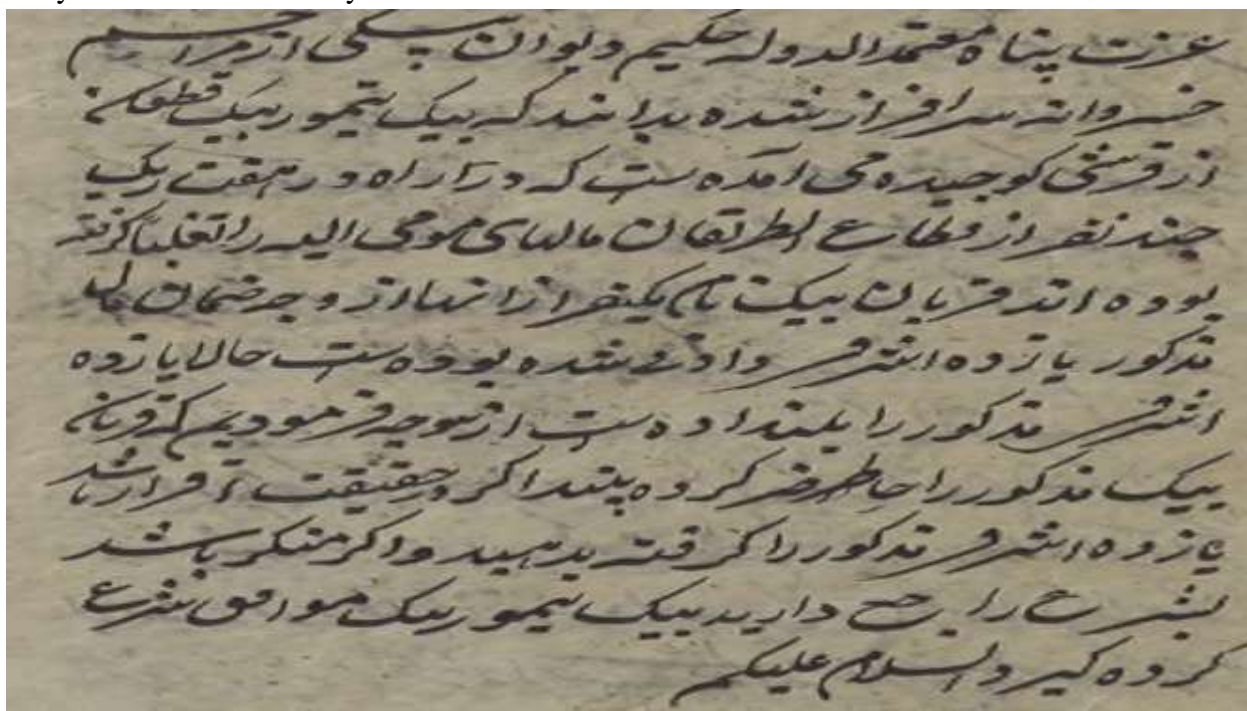 عزت پناه معتمد الدوله حکیم دیوان بیکی از مراحم
خسروانه سرافراز شده بدانند که بیک تیمور بیک قطغانی
از قرشی کوچیده می آمده ست که در آن راه در هفت ریک
چند نفر از قطاع الطریقان مالهای مومی الیه را تغلبا کرفته
بوده اند قربان بیک نام یکنفر از انها از وجه ضمان مال
مذکور یازده اشرفی واده شده بوده ست حالا یازده
اشرفی مذکور را نداده ست ازینوجه فرمودیم که قربان
بیک مذکور را حاضر کرده بینند اکر در حقیقت اقرار باشد
یازده اشرفی مذکور را کرفته بدهید و اکر منکر باشد
بشرع راجع دارید بیک تیمور بیک موافق شرع
کرده کیرد والسلام علیکم